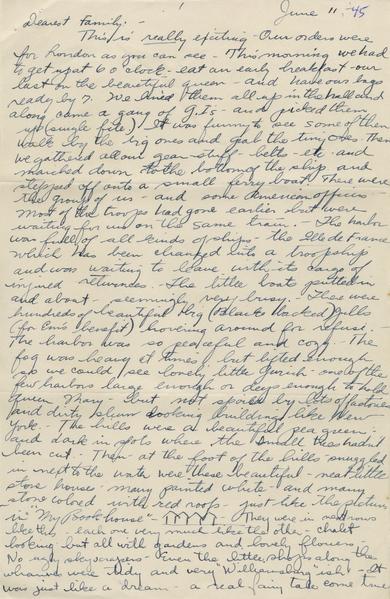 June 11, -45
Dearest Family, -
This is really exciting - Our orders were
for London as you can see - This morning we had
to get up at 6 o'clock - eat an early breakfast - our
last on the beautiful queen - and have our bags
ready by 7. We lined them all up in the hall and
along came a gang of G.I.s - and picked them
up (single file). It was funny to see some of them
walk by the big ones and grab the tiny ones. Then
we gathered all our gear - stuff - belts - etc and
marched down to the bottom of the ship and
stepped off onto a small ferry boat. There were
the group of us - and some American officers
most of the troops had gone earlier but were
waiting for us on the same train. - The harbor
was full of all kinds of ships - the Ile de France
which has been changed into a troopship
and was waiting to leave with its cargo of
injured returnees. The little boats puttered in
and about - seemingly very busy. - There were
hundreds of beautiful big (Black backed) gulls
(for benefit) hovering around for refuse.
The harbor was so peaceful and cozy - The
fog was heavy at times, but lifted enough
so we could see lovely little - one of the
few harbors large enough or deep enough to hold
Queen Mary - but not spoiled by lots of factories
and dirty slum looking buildings like New
York. - The hills were a beautiful pea green -
and dark in spots where the small trees hadn't
been cut - Then at the foot of the hills snuggled
in next to the water were these beautiful - neat little
stone houses - many painted white - and many
stone colored with red roofs - just like the pictures
in "My Book house" - They were in neat rows
like this, each one very much like the other - chalk
looking but all with gardens and lovely flowers
No ugly skyscrapers - Even the little shops along the
wharves were tidy and very "Williamsburg"ish - It
was just like a dream - a real fairy tale come true